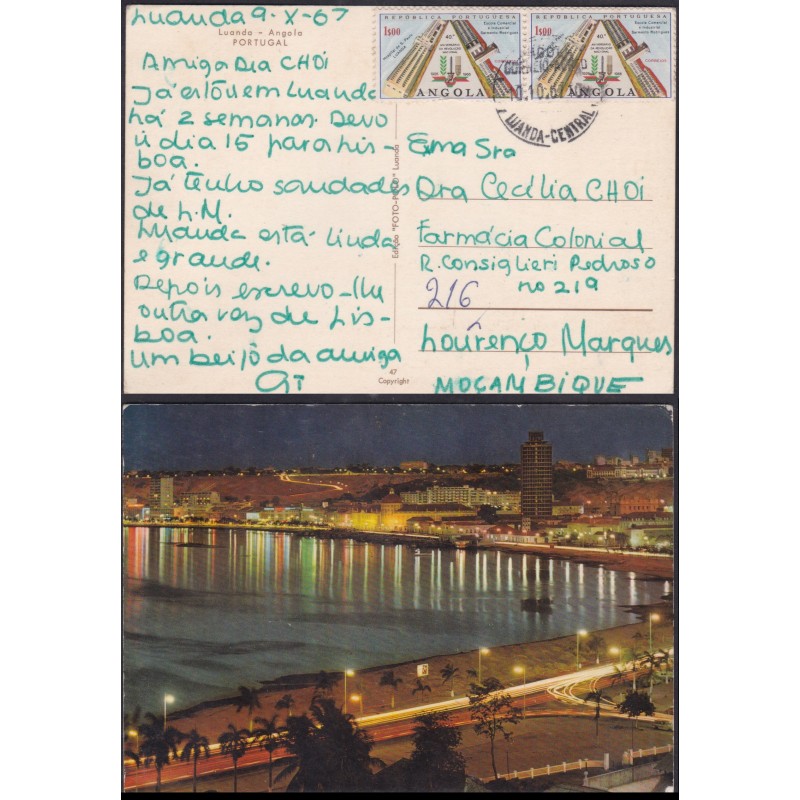 Luanda 9-X-67
Luanda - Angola
PORTUGAL
Amiga Dra CHOI
Já estou em Luanda
há 2 semanas. Devo
ir dia 15 para Lis-
boa.
Já tenho saudades
de L.M.
Luanda está linda
e grande.
Depois escrevo-lhe
outra vez de Lis-
boa.
Um beijo da amiga
Edição "FOTO-POLO" Luanda
47
Copyright
REPÚBLICA PORTUGUESA
1$00
Escola Comercial
e Industrial
Sarmento Rodrigues
40.º
ANGOLA
REPÚBLICA PORTUGUESA
1$00
Escola Comercial
e Industrial
Sarmento Rodrigues
40.º
CORREIOS
ANGOLA
10.10.67
LUANDA-CENTRAL
Exma Sra
Dra Cecília CHOI
Farmácia Colonial
R. Consiglieri Pedroso
no 219
216
Lourenço Marques
MOÇAMBIQUE